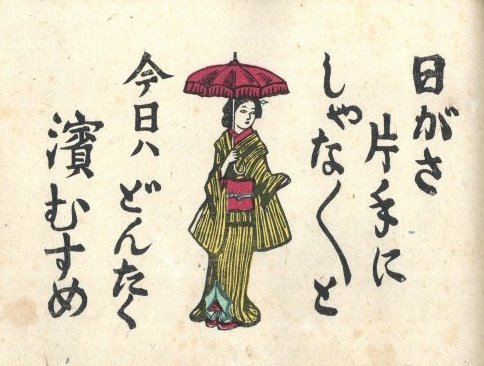 日がさ
片手に
しゃなく〳〵と
今日ハ
どんたく
濱むすめ